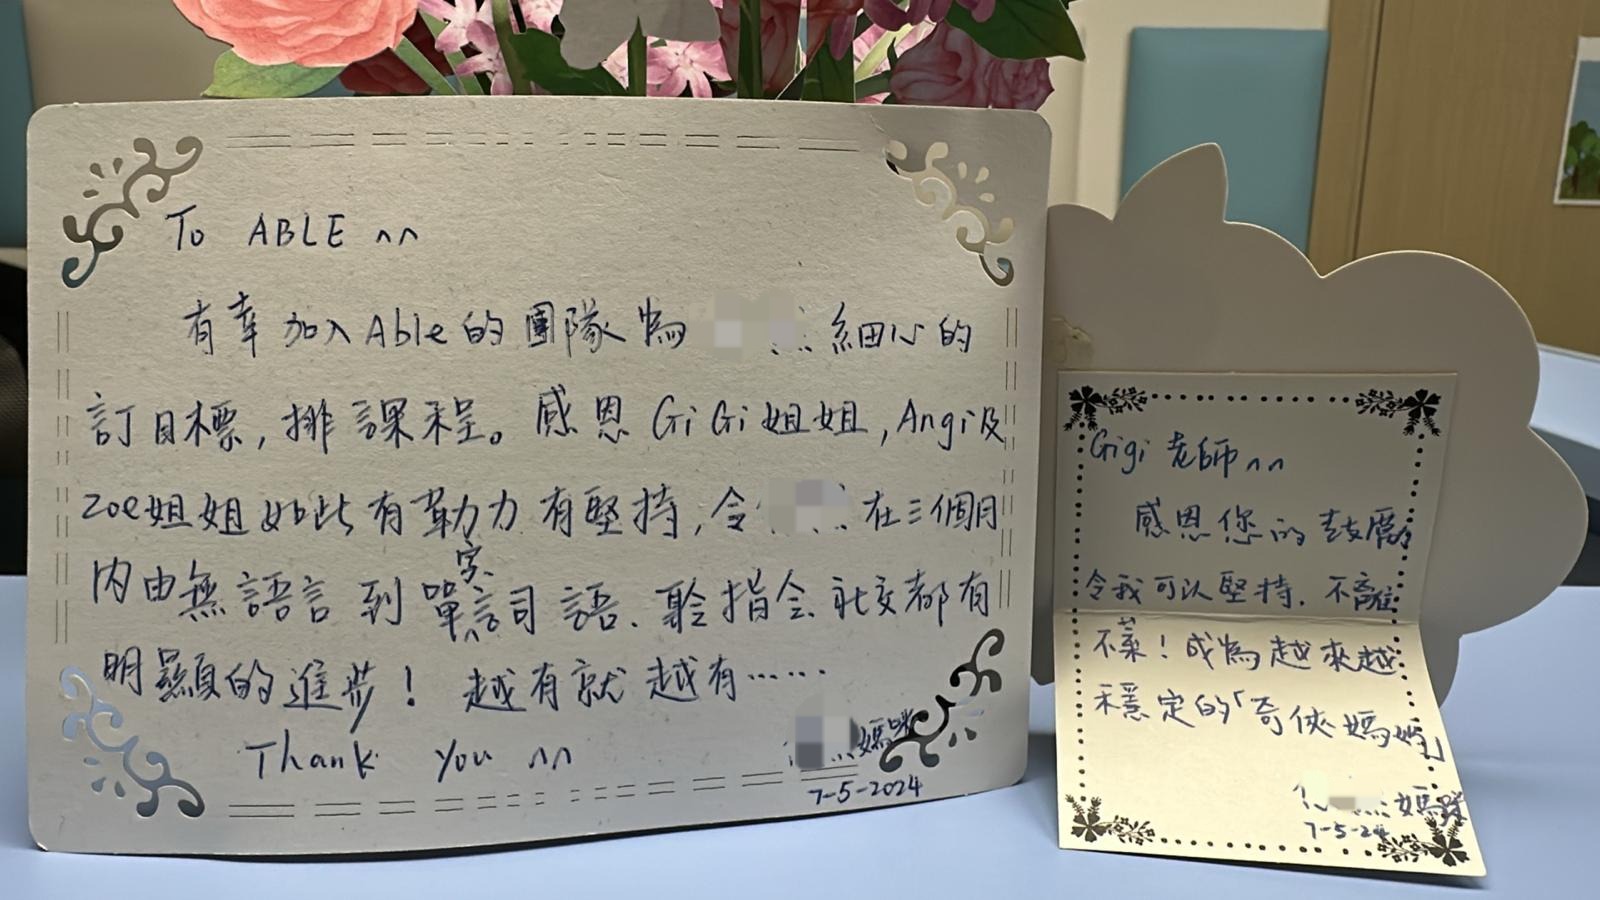 To ABLE ^^
有幸加入Able的團隊為 細心的
訂目標,排課程。感恩 GiGi姐姐,Angi及
Zoe姐姐如此有勤力有堅持,令 在三個月
內由無語言到單字、詞語、聆指令、社交都有
明顯的進步!越有就越有……
Thank you ^^
媽咪
7-5-2024
Gigi 老師^^
感恩您的鼓勵
令我可以堅持、不離
不棄!成為越來越
穩定的「奇俠媽媽」
媽咪
7-5-24